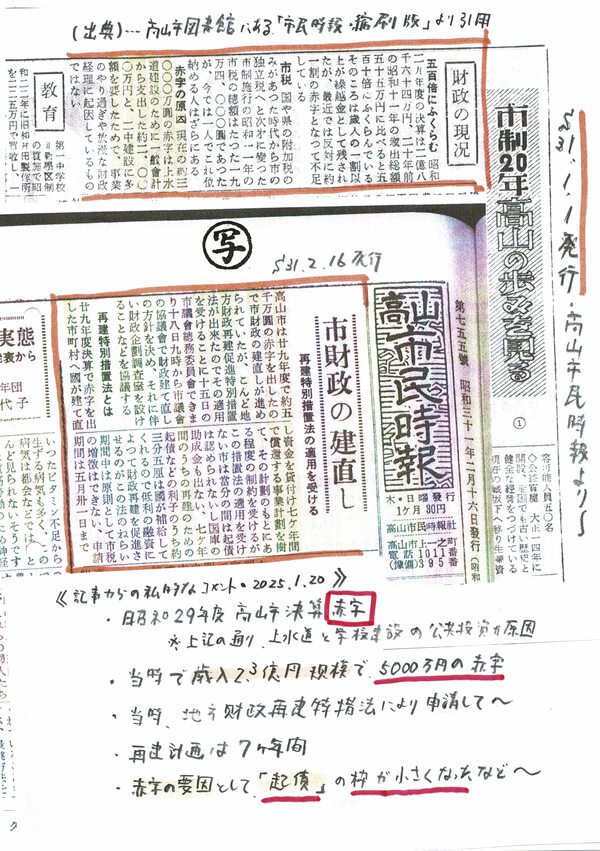 (出典)…高山市図書館にある「市民時報・縮刷版」より引用
S31.1.1発行・高山市民時報より〜
市制20年高山の歩みを見る
①
財政の現況
五百倍にふくらむ 昭和
二八年度の決算は二億八
千六十四万円と二十年前
の昭和十一年の歳出総額
五十五万円に比べると五
百十倍にふくらんでいる
そのころは歳入の一割以
上が繰越金として残され
たが、最近では反対に約
一割の赤字となつて不足
市税 国や県の附加税の
みがあつた時代から市の
独立税へと大巾に変つた
市制施行の昭和一一年の
市税の総額はたった一九
万四、〇〇〇円であつた
が、今では一人でこれ位
納める人はざらにある
赤字の原因 現在の約三
〇〇〇万円の赤字は上水
道建設のために一般会計
から支出した
〇万円と、二中建設に多
額を要したためで、事業
のやり過ぎや放漫な財政
経理に起因しているもの
ではない
教育
第一中学校
写
S31.2.16発行
第七五五號 昭和三十一年二月十六日発行
高山市民時報
木・日曜発行
1ケ月 30円
高山市民時報社
高山市上一之町
電話 1011番
(議備) 395番
市財政の建直し
再建特別措置法の適用を受ける
高山市は廿九年度で約五
千万圓の赤字を出したの
で市財政の建直しが進め
られていたが、こんど地
方財政再建促進特別措置
法が出来たのでその適用
を受けることに十五日の
市議會総務委員会できま
り十八日九時から市議會
の協議會で財政建て直し
の方針を決め、それに伴
い財政企劃調査室を設け
ることなどを協議する
再建特別措置法とは
廿九年度決算で赤字を出
した市町村へ國が建て直
し資金を貸付け七ケ年間
で償還する事業計画を樹
て、その計画のもとにあ
る程度の制約を受けるが
この措置法の適用を受け
ない市は当分の間は起債
は認められないし国庫の
助成金も出ない、七ケ年
間のうちの再建のための
起債などの利子のうち約
三分五厘は國が補給して
くれるので低利の融資に
よつて財政再建を促進さ
せるのがこの法のねらい
期間中は原則として市税
の増徴はできない、申請
期間は五月卅一日まで
《記事からの私的なコメント・2025.1.20》
・昭和29年度 高山市決算 赤字
※上記の通り、上水道と学校建設の公共投資が原因
・当時で歳入2.3億円規模で、5000万円の赤字
・当時、地方財政再建特措法により申請して〜
・再建計画は7ヶ年間
・赤字の要因として「起債」の枠が小さくなったなど〜